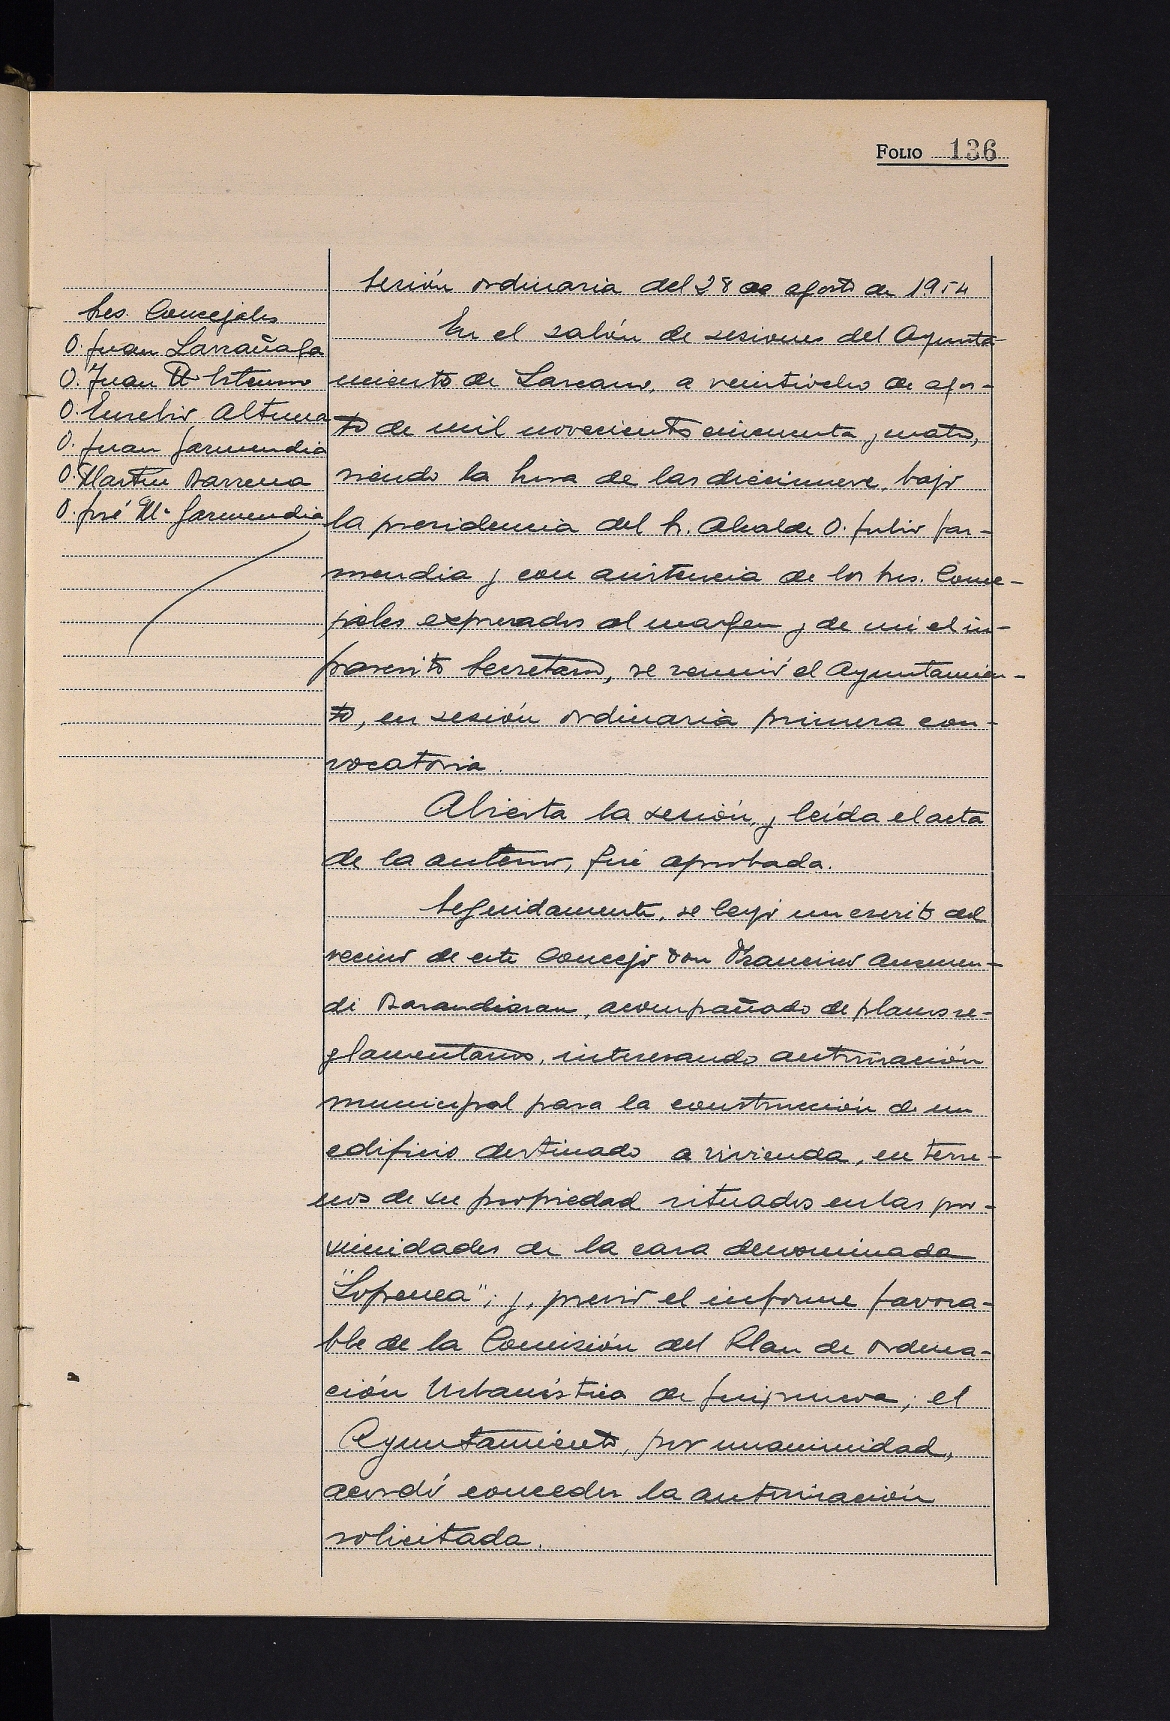 FOLIO 136
Sesión ordinaria del 28 de agosto de 1954
Sres. Concejales
D. Juan Larrañaga
D. Juan
D. Eusebio Altuna
D. Juan Garmendia
D. Martín Barrena
D. José Mª Garmendia
En el salón de sesiones del Ayunta-
miento de Lazcano, a veintiocho de agos-
to de mil novecientos cincuenta y cuatro,
siendo la hora de las diecinueve, bajo
la presidencia del Sr. Alcalde D. Julio Gar-
mendia y con asistencia de los Sres. Conce-
jales expresados al margen y de mi el in-
frascrito Secretario, se reunió el Ayuntamien-
to, en sesión ordinaria primera con-
vocatoria.
Abierta la sesión, y leída el acta
de la anterior, fué aprobada.
Seguidamente, se leyó un escrito del
vecino de este Concejo Don Francisco Aseguin-
di Barandiaran, acompañado de planos re-
glamentarios, interesando autorización
municipal para la construcción de un
edificio destinado a vivienda, en terre-
nos de su propiedad situados en las pro-
ximidades de la casa denominada
; y, previo el informe favora-
ble de la Comisión del Plan de Ordena-
ción Urbanística de Guipuzcoa, el
Ayuntamiento, por unanimidad,
acordó conceder la autorización
solicitada.